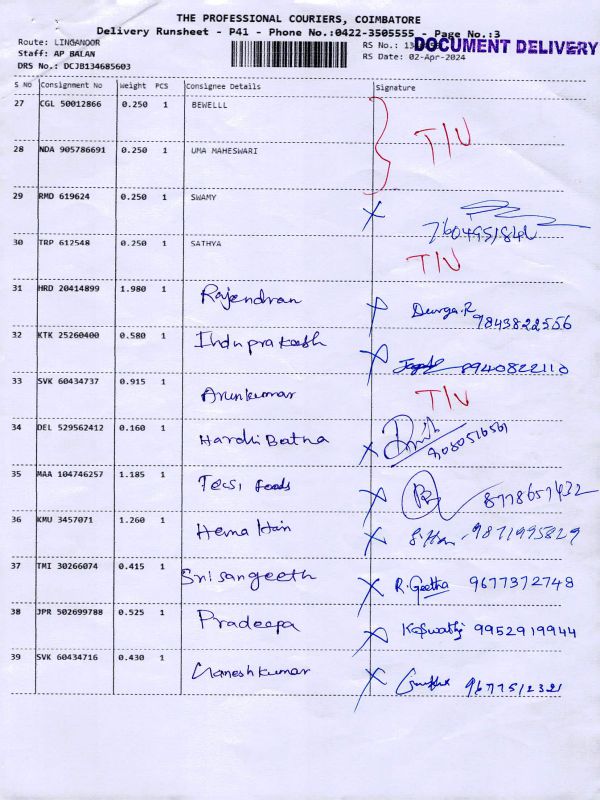 THE PROFESSIONAL COURIERS, COIMBATORE
Delivery Runsheet - P41 - Phone No.:0422-3505555 - Page No.:3
DOCUMENT DELIVERY
Route: LINGANOOR RS No.:
Staff: AP BALAN RS Date: 02-Apr-2024
DRS No.: DCJB134685603
S NO Consignment No Weight PCS Consignee Details Signature
27 CGL 50012866 0.250 1 BEWELLL
T/N
28 NDA 905786691 0.250 1 UMA MAHESWARI
29 RMD 619624 0.250 1 SWAMY X
30 TRP 612548 0.250 1 SATHYA T/N
31 HRD 20414899 1.980 1 Rajendran X Durga.R 9843822556
32 KTK 25260400 0.580 1 Induprakash X 8940822110
33 SVK 60434737 0.915 1 Arunkumar T/N
34 DEL 529562412 0.160 1 X
35 MAA 104746257 1.185 1 foods X 8778657432
36 KMU 3457071 1.260 1 Hema X 9871995829
37 TMI 30266074 0.415 1 Srisangeeth X R.Geetha 9677372748
38 JPR 502699788 0.525 1 Pradeepa X 9952919944
39 SVK 60434716 0.430 1 X 9677512321